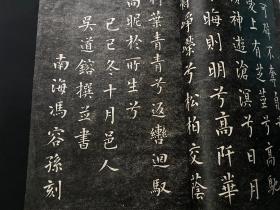 兮高馳
神遊滄溟兮日月
晦則明兮高阡華
崢嶸兮松柏交蔭
葉青青兮返轡迴馭
尚昵於所生兮
己巳冬十月邑人
吳道鎔撰並書
南海馮容孫刻